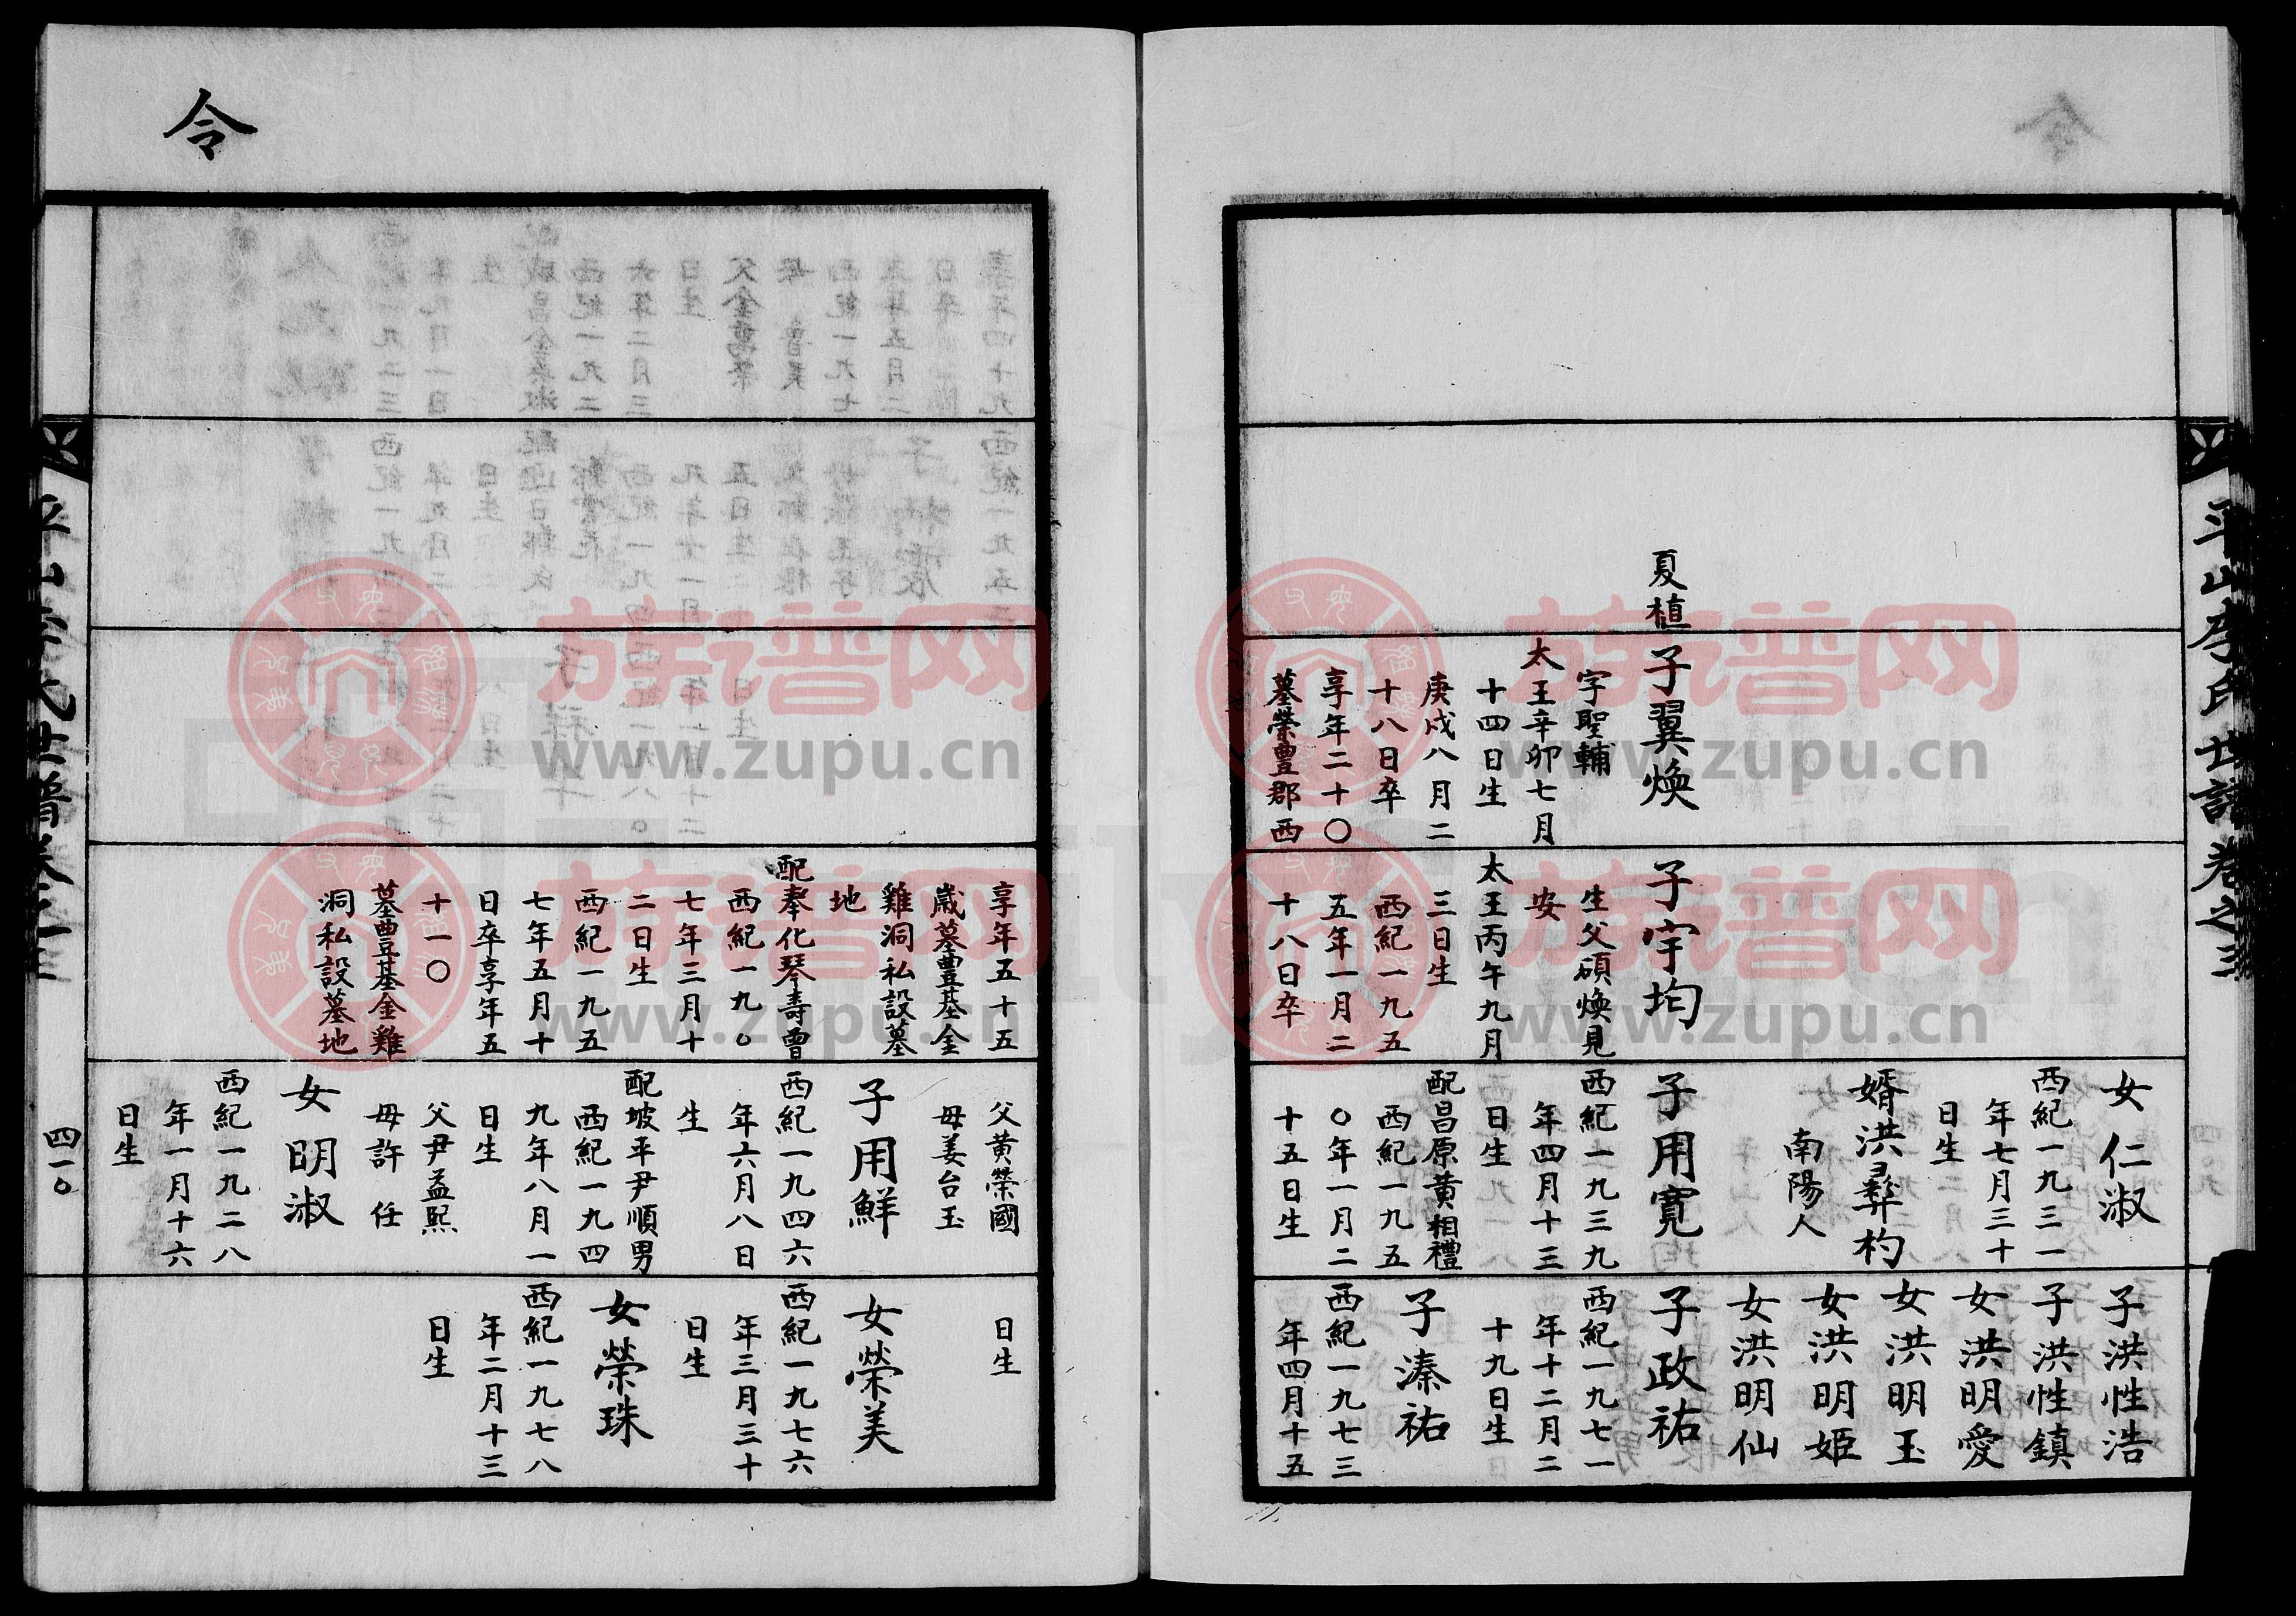 令
平山李氏世譜卷之三
夏植
子翼煥
字聖輔
太王辛卯七月
十四日生
庚戌八月二
十八日卒
享年二十〇
墓榮豊郡西
子宇均
生父碩煥見
安
太王丙午九月
三日生
西紀一九五
五年一月二
十八日卒
女仁淑
西紀一九三一
年七月三十
日生
婿洪彞杓
南陽人
子用寬
西紀一九三九
年四月十三
日生
配昌原黃相禮
西紀一九五
〇年一月二
十五日生
子洪性浩
子洪性鎮
女洪明愛
女洪明玉
女洪明姬
女洪明仙
子政祐
西紀一九七一
年十二月二
十九日生
子溱祐
西紀一九七三
年四月十五
享年五十五
歲墓豊基金
雞洞私設墓
地
配奉化琴壽曾
西紀一九〇
七年三月十
二日生
西紀一九五
七年五月十
日卒享年五
十一〇
墓豊基金雞
洞私設墓地
父黃榮國
母姜台玉
子用鮮
西紀一九四六
年六月八日
生
配坡平尹順男
西紀一九四
九年八月一
日生
父尹益熙
母許任
女明淑
西紀一九二八
年一月十六
日生
日生
女榮美
西紀一九七六
年三月三十
日生
女榮珠
西紀一九七八
年二月十三
日生
四一〇
族谱网
www.zupu.cn
族谱网
www.zupu.cn
族谱网
www.zupu.cn
族谱网
www.zupu.cn